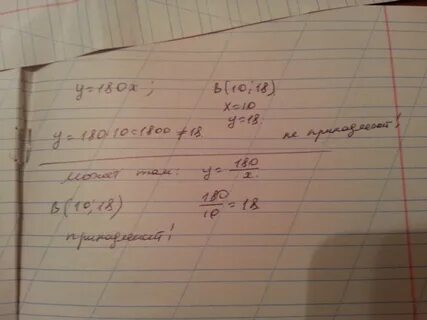 y=180x; B(10;18)
x=10
y=18.
y=180·10=1800≠18. не принадлежит!
Может там: y=180/x.
B(10;18) 180/10=18
принадлежит!